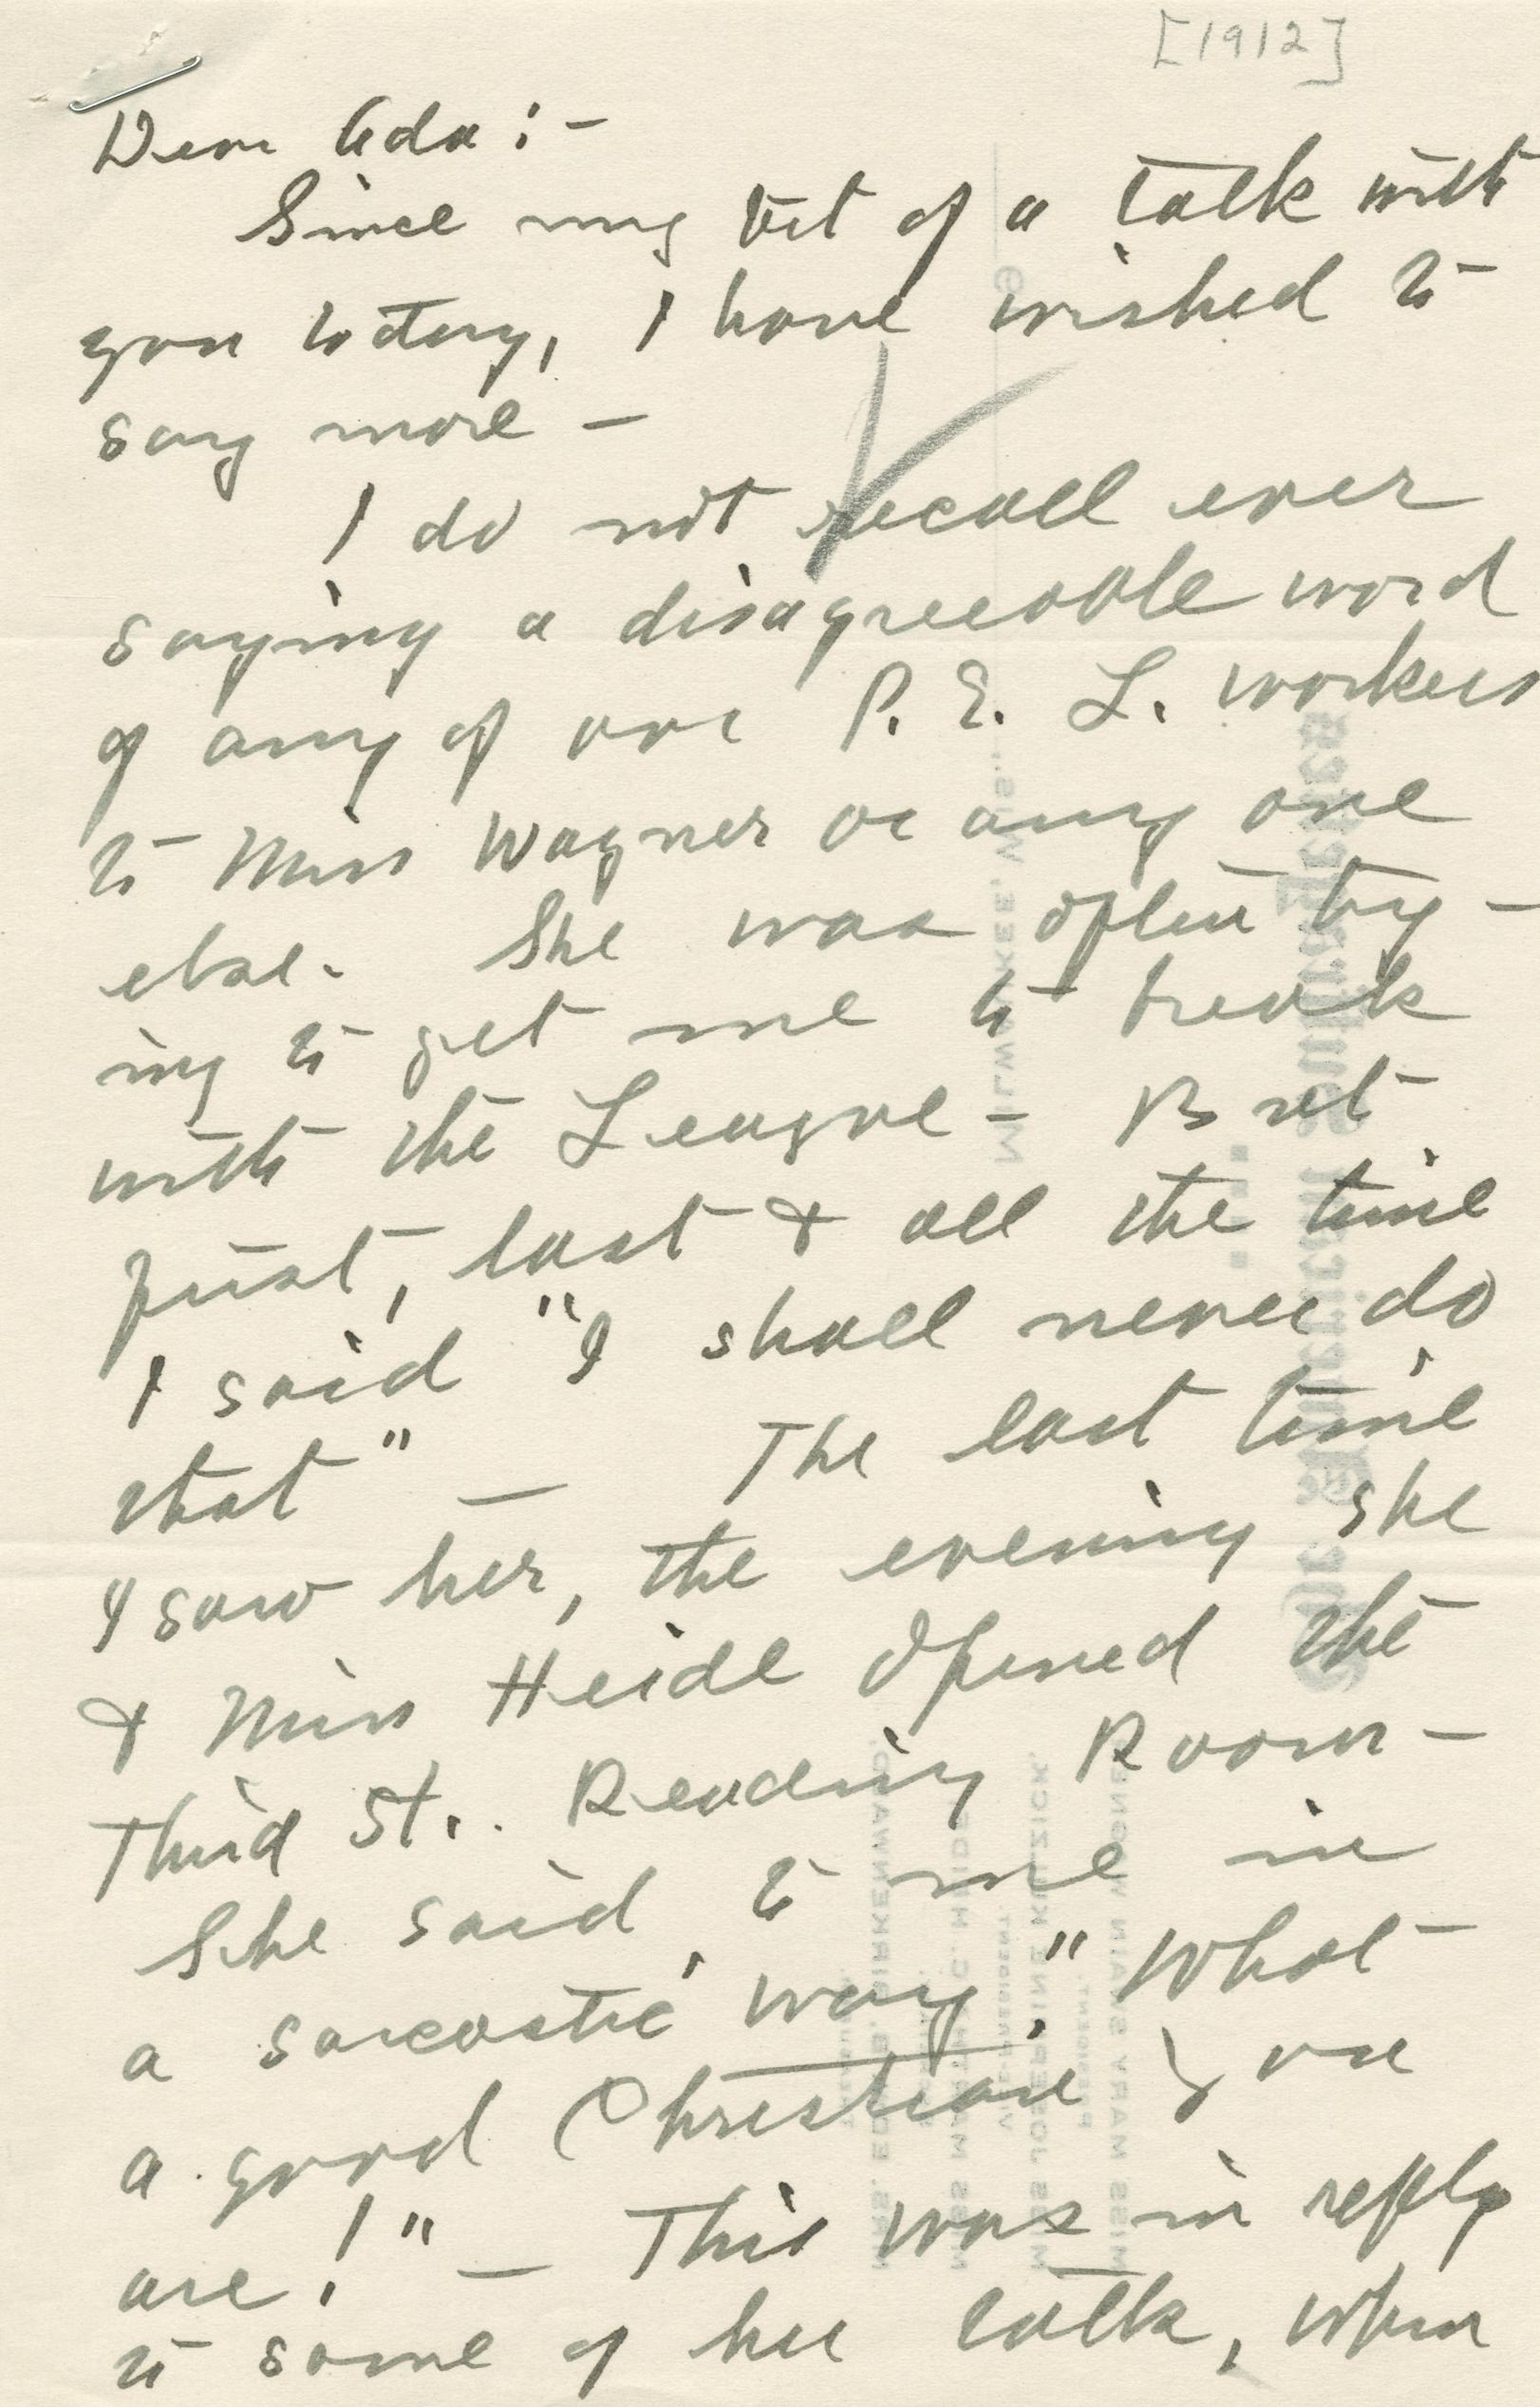 [1912]
Dear Ada:-
Since my bit of a talk with
you today, I have wished to
say more -
I do not recall ever
saying a disagreeable word
of any of our P. E. L. workers
to Miss Wagner or any one
else. She was often try-
ing to get me to break
with the League - But
first, last & all the time
I said "I shall never do
that" - The last time
I saw her, the evening she
& Miss Heide opened the
Third St. Reading Room -
She said, to me in
a sarcastic way, "What
a good Christian you
are!" - This was in reply
to some of her talk, when